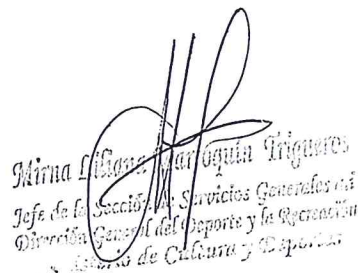 Mirna Liliana Marroquin Trigueros
Jefe de la Sección de Servicios Generales
Dirección General del Deporte y la Recreación
de Cultura y Deportes